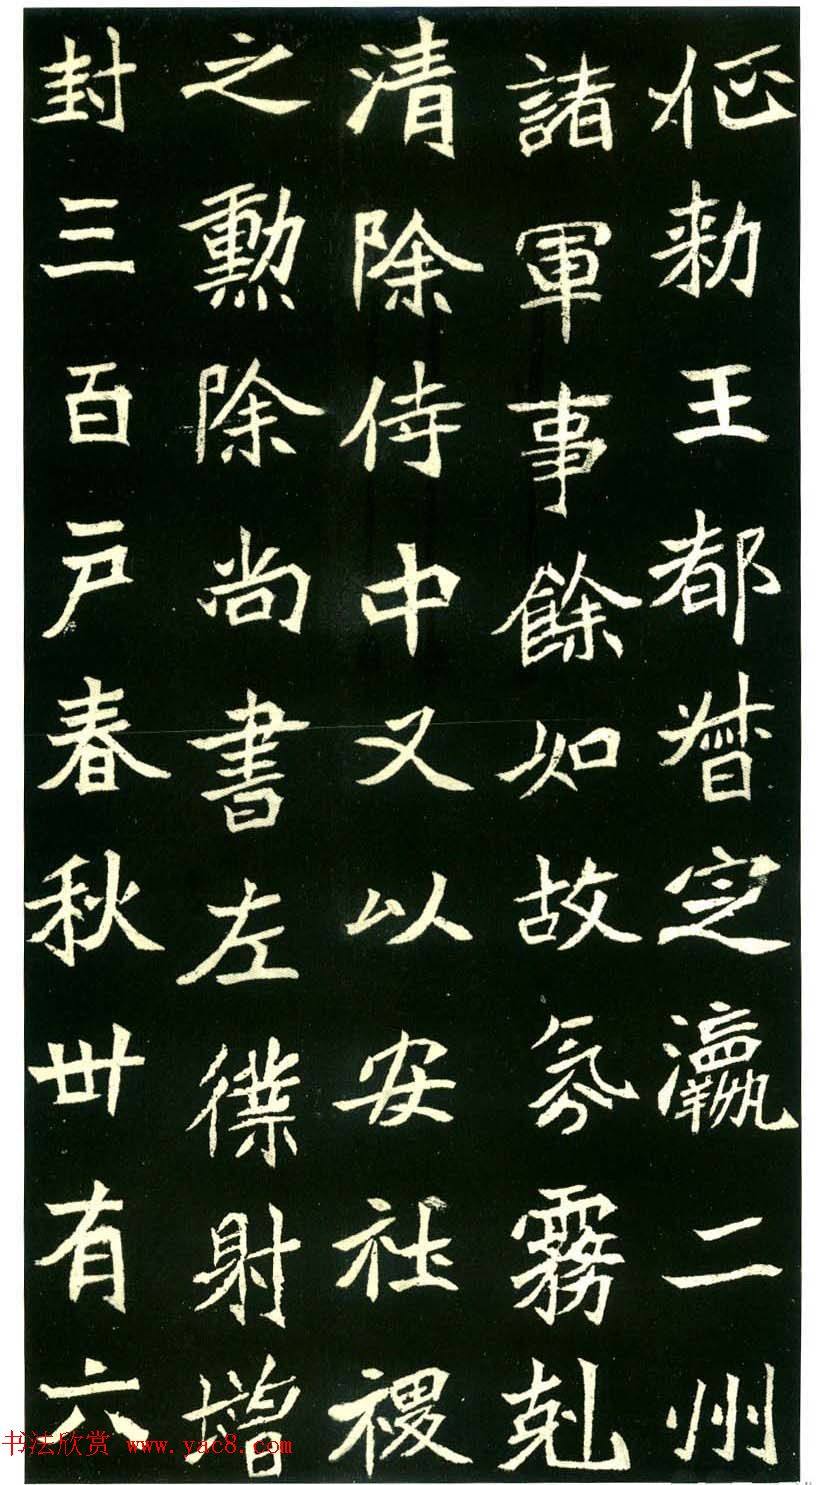 征勅王都督定瀛二州
諸軍事餘如故氛霧剋
清除侍中又以安社稷
之勲除尚書左僕射增
封三百户春秋卌有六
书法欣赏 www.yac8.com